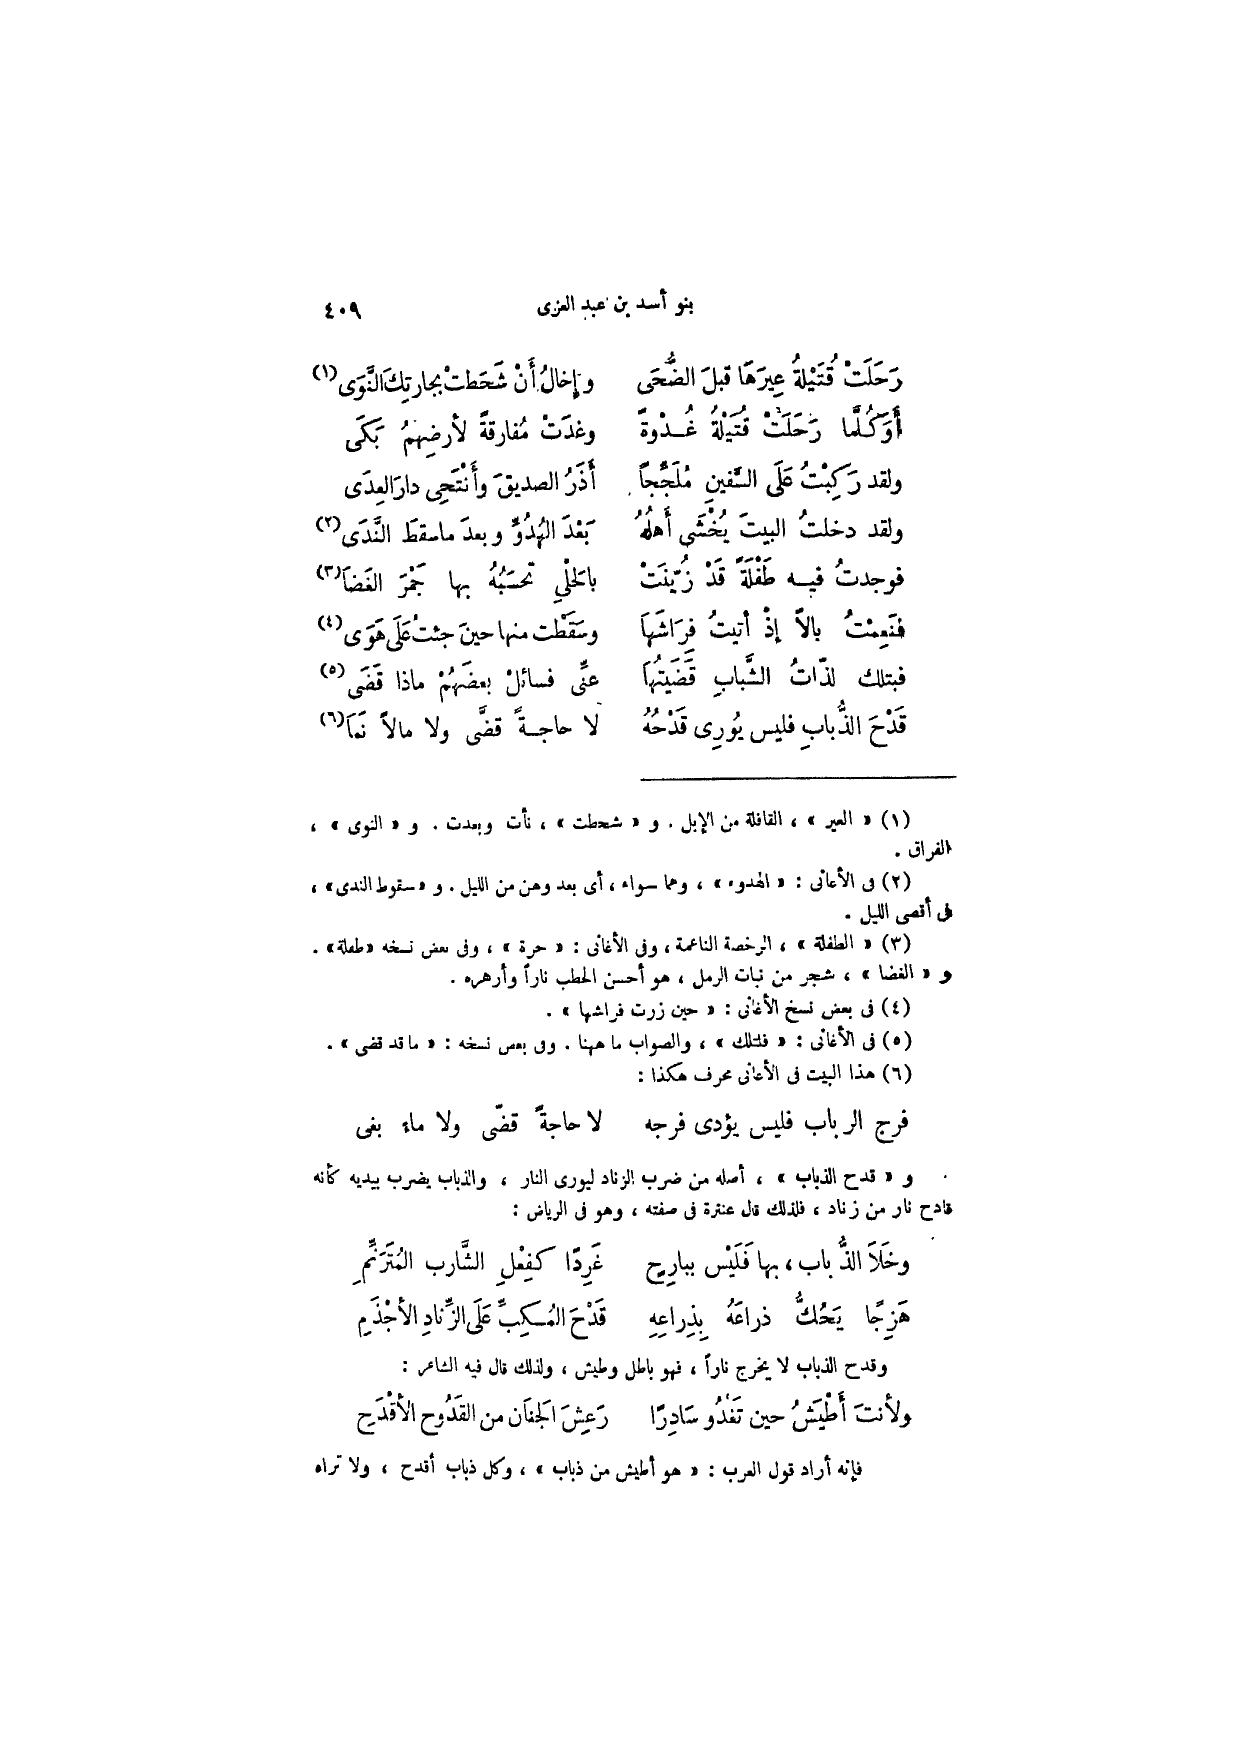 بنو أسد بن عبد العزى ٤٠٩
رَحَلَتْ قُتَيْلةُ عِيرَهَا قبلَ الضُّحَى وإخالُ أنْ شَحَطتْ بجارتِكَ النَّوَى(١)
أَوَكُلَّما رَحَلَتْ قُتَيْلةُ غُدْوةً وغدَتْ مُفارقةً لأرضِهمُ بَكَى
ولقد رَكِبْتُ عَلَى السَّفينِ مُلَجِّجاً أَذَرُ الصديقَ وأَنْتَحِى دارَ العِدَى
ولقد دخلتُ البيتَ يُخْشَى أَهلُهُ بَعْدَ الهُدُوِّ وبعدَ ماسقطَ النَّدَى(٢)
فوجدتُ فيه طَفْلَةً قَدْ زُيِّنَتْ بالحَلْىِ تحسَبُهُ بها جَمْرَ الغَضَا(٣)
فنَعِمْتُ بالاً إذْ أتيتُ فِرَاشَها وسَقَطْت منها حينَ جئتُ عَلَى هَوَى(٤)
فبتلك لذّاتُ الشَّبابِ قَضَيْتُها عنِّى فسائلْ بعضَهُمْ ماذا قَضَى(٥)
قَدْحَ الذُّبابِ فليس يُورِى قَدْحُهُ لا حاجةً قضَّى ولا مالاً نَمَا(٦)
(١) « العير » ، القافلة من الإبل . و « شحطت » ، نأت وبعدت . و « النوى » ،
الفراق .
(٢) فى الأغانى : « الهدوء » ، وهما سواء ، أى بعد وهن من الليل . و « سقوط الندى » ،
فى أقصى الليل .
(٣) « الطفلة » ، الرخصة الناعمة ، وفى الأغانى : « حرة » ، وفى بعض نسخه « طفلة » .
و « الغضا » ، شجر من نبات الرمل ، هو أحسن الحطب ناراً وأزهره .
(٤) فى بعض نسخ الأغانى : « حين زرت فراشها » .
(٥) فى الأغانى : « فلتلك » ، والصواب ما ههنا . وفى بعض نسخه : « ما قد قضى » .
(٦) هذا البيت فى الأغانى محرف هكذا :
فرج الرباب فليس يؤدى فرجه لا حاجةً قضّى ولا ماء بغى
و « قدح الذباب » ، أصله من ضرب الزناد ليورى النار ، والذباب يضرب بيديه كأنه
قادح نار من زناد ، فلذلك قال عنترة فى صفته ، وهو فى الرياض :
وخَلاَ الذُّباب ، بها فَلَيْس ببارِحٍ غَرِدًا كفِعْلِ الشَّارب المُتَرَنِّمِ
هَزِجًا يَحُكُّ ذراعَهُ بِذِراعِهِ قَدْحَ المُكِبِّ عَلَى الزِّنادِ الأجْذَمِ
وقدح الذباب لا يخرج ناراً ، فهو باطل وطيش ، ولذلك قال فيه الشاعر :
ولأنتَ أَطْيَشُ حين تَغْدُو سَادِرًا رَعِشَ الجَنَان من القَدُوح الأقْدَحِ
فإنه أراد قول العرب : « هو أطيش من ذباب » ، وكل ذباب أقدح ، ولا تراه